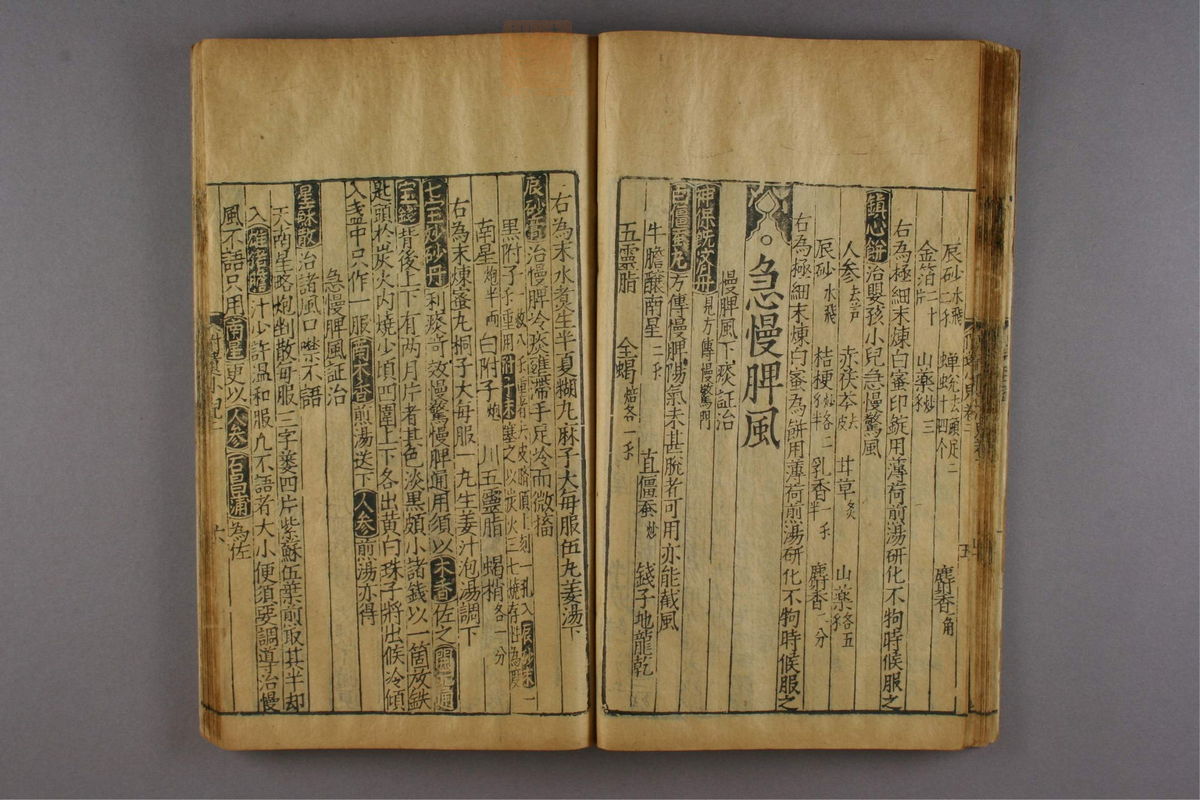 辰砂水飛二
金箔二十片 山藥炒三 麝香一角
右為極細末煉白蜜印錠用薄荷煎湯研化不拘時候服之
鎮心餅治嬰孩小兒急慢驚風
人参去芦 赤茯苓去皮 甘草炙 山藥各五
辰砂水飛 桔梗炒各二 乳香半 麝香一分
右為極細末煉白蜜為餅用薄荷煎湯研化不拘時候服之
急慢脾風
慢脾風下痰証治
神保既濟丹見方傳慢驚門
方傳慢脾陽氣未甚脫者可用亦能截風
牛膽釀南星二 直僵蚕炒 錢子地龍乾
五靈脂 全蝎焙各一
右為末水煮生半夏糊丸麻子大每服伍丸姜湯下
辰砂膏治慢脾冷痰壅滯手足冷而微搐
黒附子
南星炮半兩 白附子炮 川五靈脂 蝎梢各一分
右為末煉蜜丸桐子大每服一丸生姜汁泡湯調下
七宝妙砂丹利痰奇效慢驚慢脾通用須以木香佐之開元通
宝錢背後上下有两月片者其色淡黒頗小諸錢以一箇放鉄
匙頭於炭火内燒少頃四圍上下各出黄白珠子將出候冷傾
入盞中只作一服南木香煎湯送下人参煎湯亦得
急慢脾風証治
星蘇散治諸風口噤不語
天南星略炮剉散每服三字姜四片紫蘇伍葉煎取其半却
入雄猪膽汁少許温和服凡不語者大小便須要調導治慢
風不語只用南星更以人参石菖蒲為佐